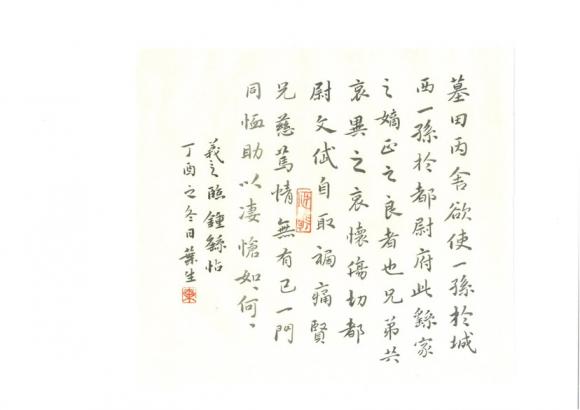 墓田丙舍欲使一孫於城
西一孫於都尉府此繇家
之嫡正之良者也兄弟共
哀異之哀懷傷切都
尉文岱自取禍痛賢
兄慈篤情無有已一門
同恤助以淒愴如何、
羲之臨鍾繇帖
丁酉之冬日葉生